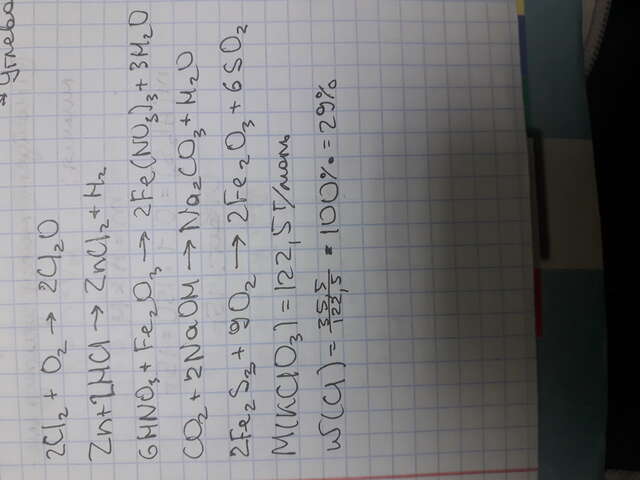 Углево
2Cl₂ + O₂ → 2Cl₂O
Zn+2HCl → ZnCl₂ + H₂
6HNO₃ + Fe₂O₃ → 2Fe(NO₃)₃ + 3H₂O
CO₂ + 2NaOH → Na₂CO₃ + H₂O
2Fe₂S₃ + 9O₂ → 2Fe₂O₃ + 6SO₂
M(KClO₃) = 122,5 г/моль
W(Cl) = 35,5/122,5 · 100% = 29%